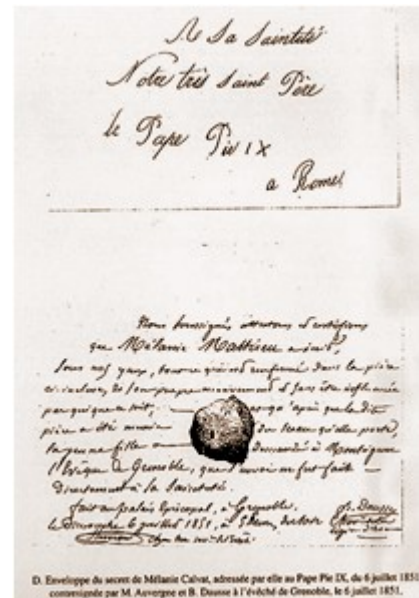 A Sa Sainteté
Notre très Saint Père
le Pape Pie IX
a Rome
Nous soussignés attestons et certifions
que Mélanie Matthieu a écrit,
sous nos yeux, tout ce qui est renfermé dans la pièce
ci-incluse, de son propre mouvement et sans être influencée
par qui que ce soit, qu'après que la dite
pièce a été munie du sceau qu'elle porte,
la jeune fille a demandé à Monseigneur
l'Evêque de Grenoble, que l'envoi en fut fait
directement à sa Sainteté.
fait au palais Episcopal, à Grenoble,
le Dimanche 6 juillet 1851, à
Dausse
D. Enveloppe du secret de Mélanie Calvat, adressée par elle au Pape Pie IX, du 6 juillet 1851,
contresignée par M. Auvergne et B. Dausse à l'évêché de Grenoble, le 6 juillet 1851.